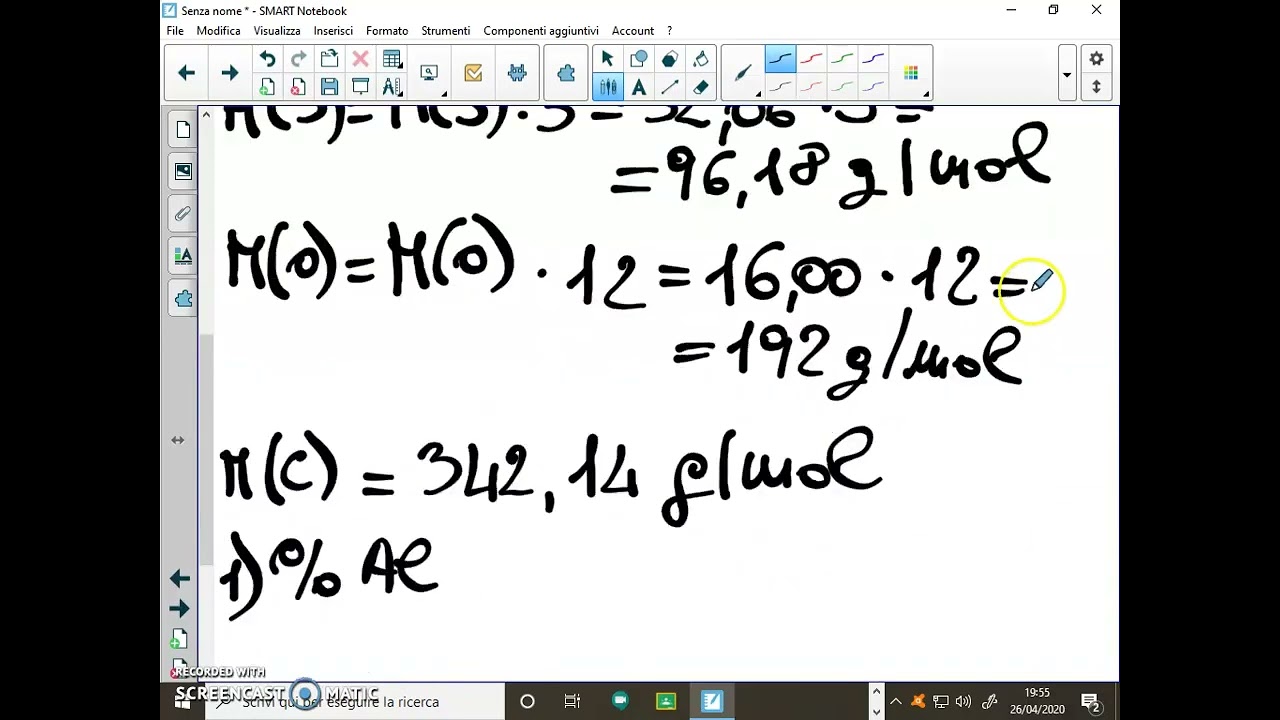 Senza nome * - SMART Notebook
File Modifica Visualizza Inserisci Formato Strumenti Componenti aggiuntivi Account ?
M(S)=M(S)·3=32,06·3=
=96,18 g/mol
M(O)=M(O)·12=16,00·12=
=192 g/mol
M(C)=342,14 g/mol
1)% Al
RECORDED WITH
SCREENCAST MATIC
Scrivi qui per eseguire la ricerca
19:55
26/04/2020
2